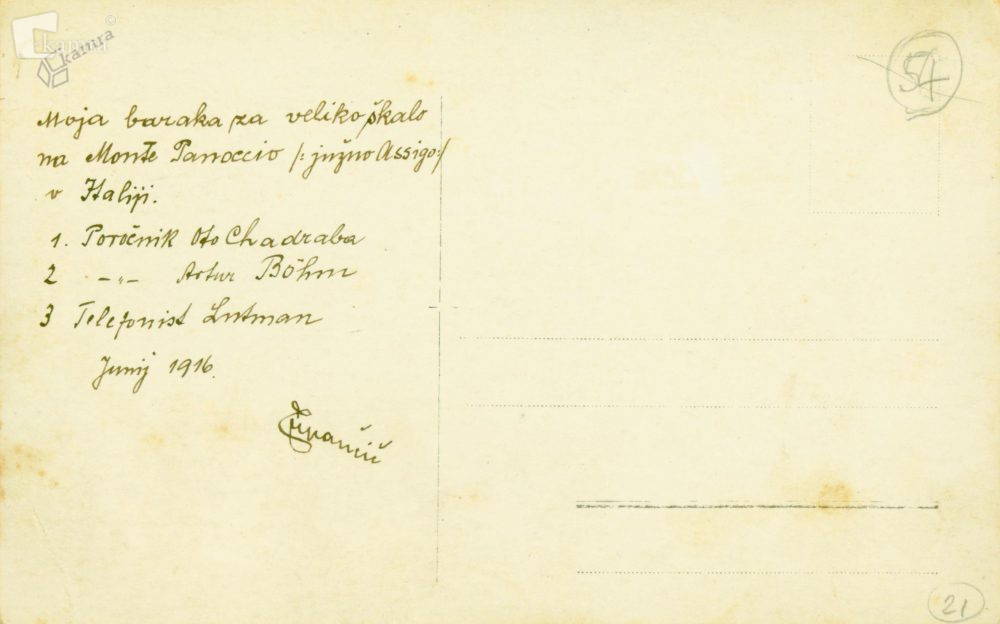 kamra
kamra
©
54
Moja baraka za veliko škalo
na Monte Panoccio /: južno Assigo:/
v Italiji.
1. Poročnik Oto Chadraba
2 -„- Artur Böhm
3 Telefonist Lutman
Junij 1916.
Županćić
21